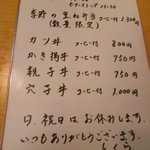 オーダーストップ 13:30
季節の重ね弁当 コーヒー付 1,300円
(数量限定)
カツ丼 コーヒー付 800円
かき揚丼 コーヒー付 750円
親子丼 コーヒー付 750円
穴子丼 コーヒー付
日、祝日はお休みします。
いつもありがとうございます。